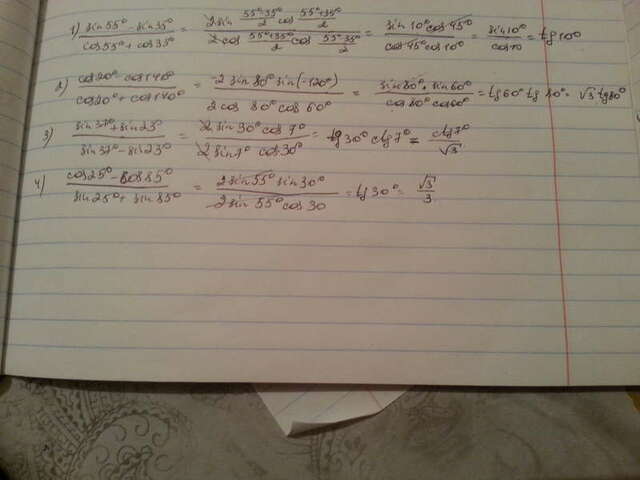 1) (sin55° - sin35°)/(cos55° + cos35°) = (2sin (55°-35°)/2 cos (55°+35°)/2)/(2cos (55°+35°)/2 cos (55°-35°)/2) = (sin10° cos45°)/(cos45° cos10°) = sin10°/cos10 = tg10°
2) (cos20° - cos140°)/(cos20° + cos140°) = (-2 sin80° sin(-120°))/(2cos 80° cos60°) = (sin80° · sin60°)/(cos80° cos60°) = tg60° tg80° = √3 tg80°
3) (sin37° + sin23°)/(sin37° - sin23°) = (2sin30° cos7°)/(2sin7° cos30°) = tg30° ctg7° = ctg7°/√3
4) (cos25° - cos85°)/(sin25° + sin85°) = (2sin55° sin30°)/(2sin55° cos30) = tg30° = √3/3